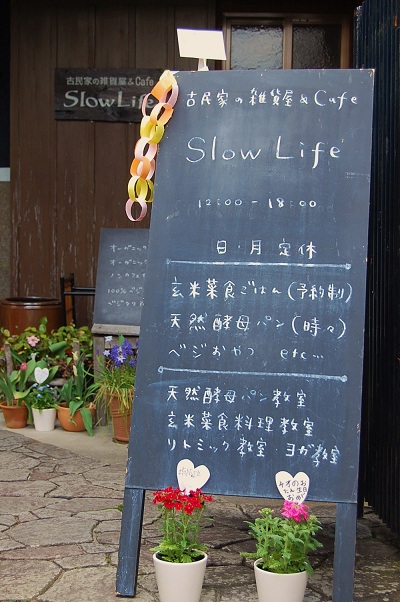 古民家の雑貨屋&Cafe
Slow Life
古民家の雑貨屋&Cafe
Slow Life
12:00-18:00
日・月定休
玄米菜食ごはん(予約制)
天然酵母パン(時々)
ベジおやつ etc…
天然酵母パン教室
玄米菜食料理教室
リトミック教室・ヨガ教室